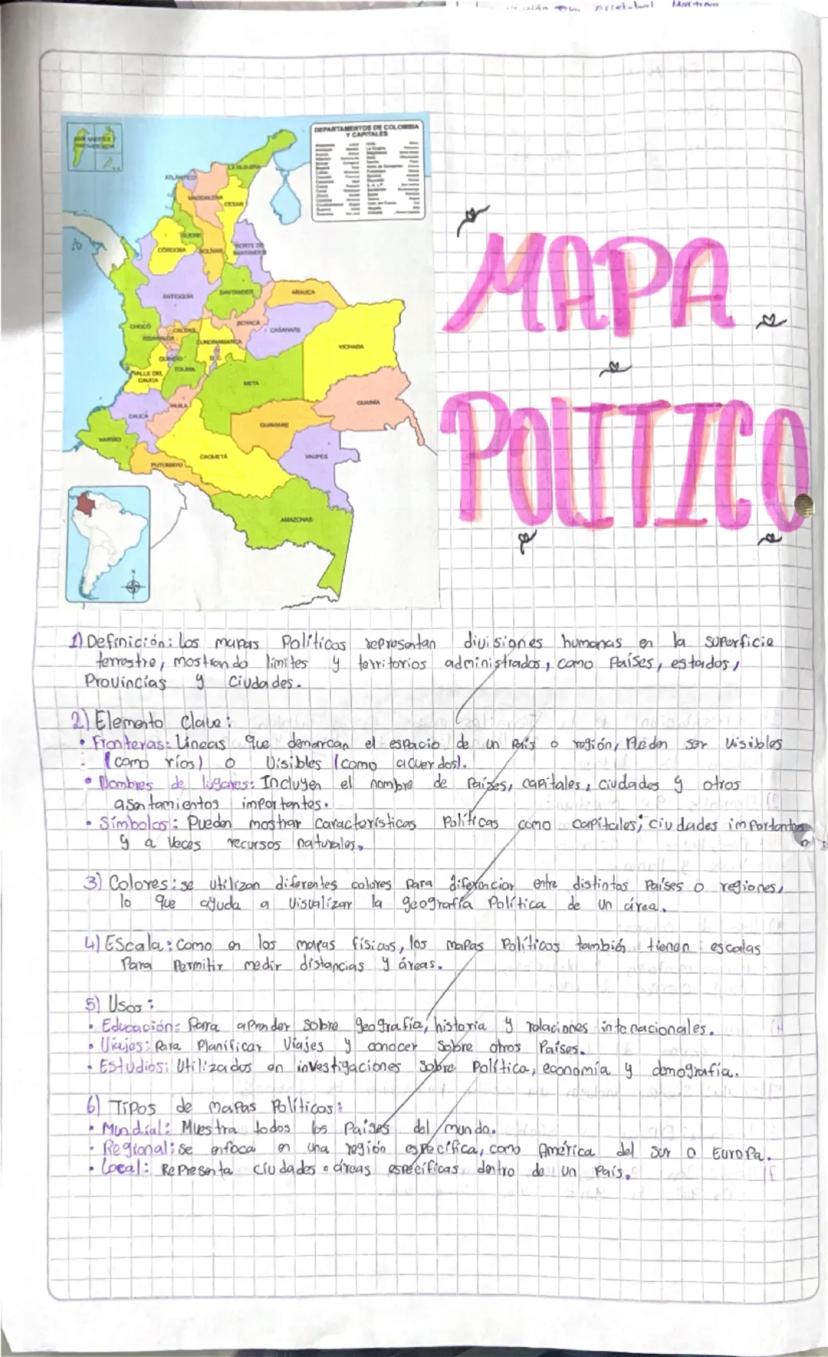 DEPARTAMENTOS DE COLOMBIA
Y CAPITALES
LA GUAJIRA
ATLÁNTICO
MAGDALENA
CESAR
SUCRE
CÓRDOBA
BOLÍVAR
NORTE DE
SANTANDER
ANTIOQUIA
SANTANDER
ARAUCA
CHOCÓ
BOYACÁ
CASANARE
CALDAS
RISARALDA
CUNDINAMARCA
VICHADA
QUINDÍO
D.C.
TOLIMA
VALLE DEL
CAUCA
META
HUILA
GUAINÍA
CAUCA
GUAVIARE
NARIÑO
CAQUETÁ
VAUPÉS
PUTUMAYO
AMAZONAS
MAPA
POLITICO
1) Definición: Los mapas Políticos representan divisiones humanas en la superficie
terrestre, mostrando límites y territorios administrados, como Países, estados,
Provincias y Ciudades.
2) Elemento Clave:
• Fronteras: Líneas que demarcan el espacio de un País o región, Pueden ser visibles
(como ríos) o Visibles (como acuerdos).
• Nombres de lugares: Incluyen el nombre de Países, capitales, ciudades y otros
asentamientos importantes.
• Símbolos: Pueden mostrar características Políticas como capitales, ciudades importantes
y a veces recursos naturales.
3) Colores: se utilizan diferentes colores Para diferenciar entre distintos Países o regiones,
lo que ayuda a visualizar la geografía Política de un área.
4) Escala: Como en los mapas físicos, los mapas Políticos también tienen escalas
Para Permitir medir distancias y áreas.
5) Usos:
• Educación: Para aprender sobre geografía, historia y relaciones intenacionales.
• Viajes: Para Planificar Viajes y conocer sobre otros Países.
• Estudios: Utilizados en investigaciones sobre Política, economía y demografía.
6) Tipos de Mapas Políticos:
• Mundial: Muestra todos los Países del mundo.
• Regional: se enfoca en una región específica, como América del Sur o Europa.
• Local: Representa ciudades o áreas específicas dentro de un País.